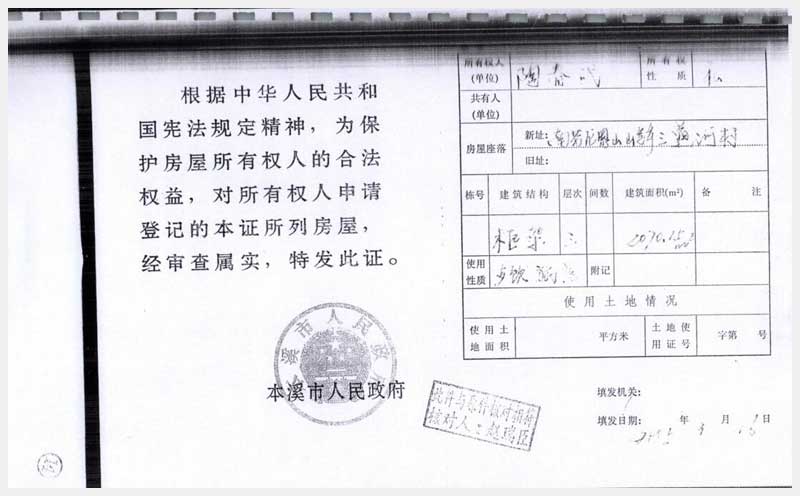 根据中华人民共和
国宪法规定精神，为保
护房屋所有权人的合法
权益，对所有权人申请
登记的本证所列房屋，
经审查属实，特发此证。
本溪市人民政府
本溪市人民政府
所有权人
(单位)
所有权
性质
共有人
(单位)
房屋座落
新址:
旧址:
栋号 建筑结构 层次 间数 建筑面积(m²) 备 注
框架 三 2070.15
使用
性质
附记
使用土地情况
使用土
地面积
平方米
土地使
用证号
字第 号
此件与原件核对相符
核对人:赵瑞臣
填发机关:
填发日期: 年 月 日